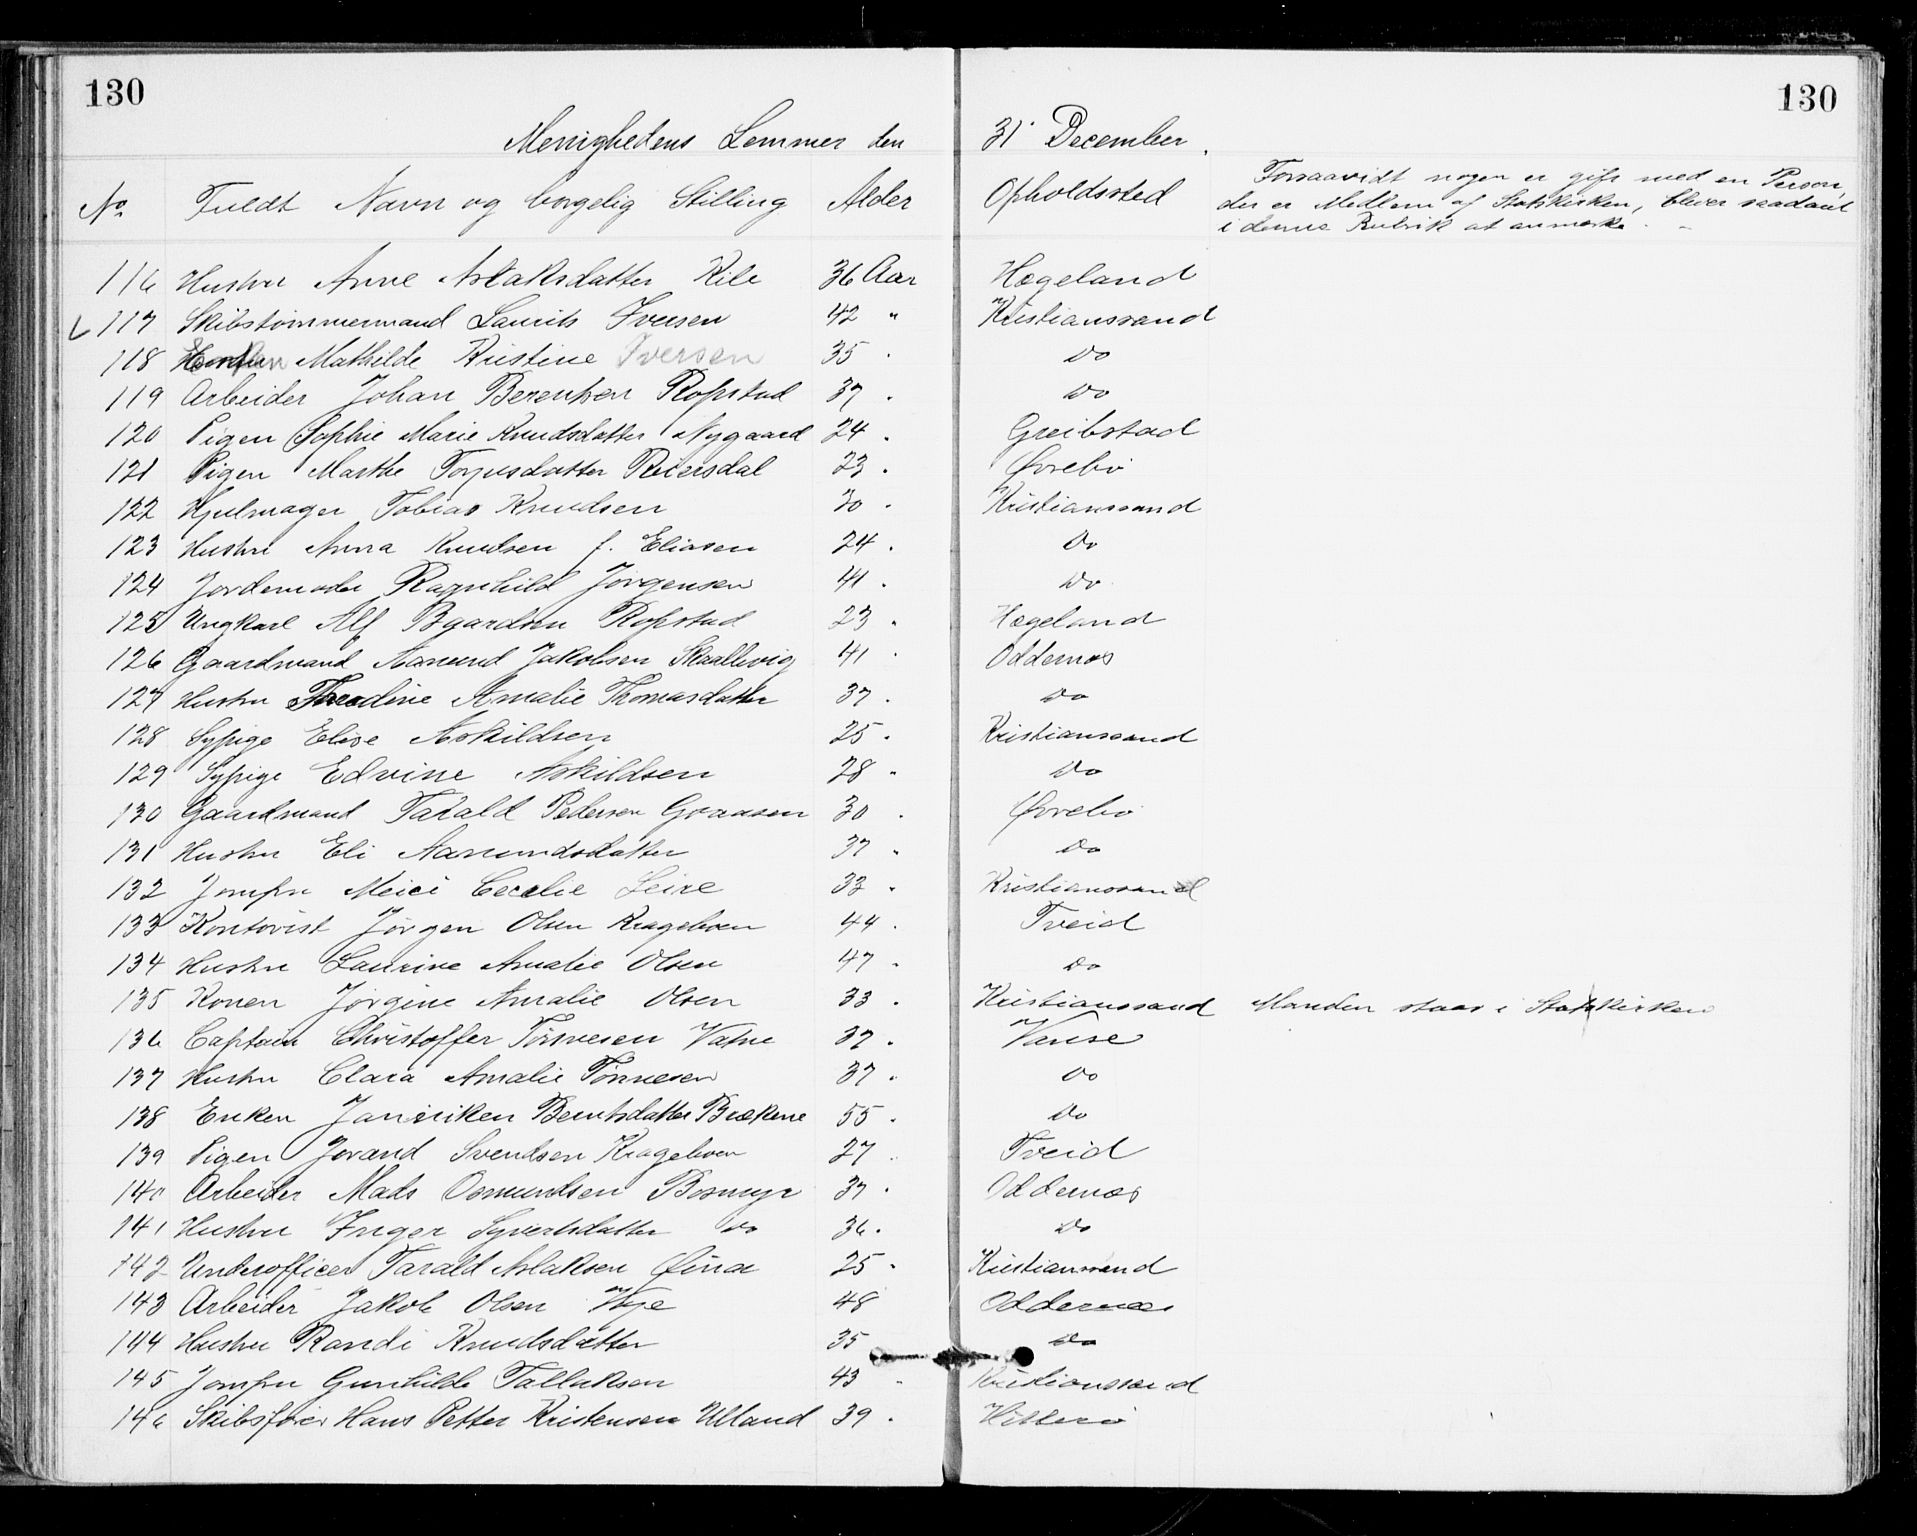 130 130
Menighedens Lemmer den 31' December
No Fuldt Navn og borgelig Stilling Alder Opholdssted Forsaavidt nogen er gift med en Person,
der er Medlem af Statskirken, bliver saadant
i denne Rubrik at anmærke.
116 Hustru Anne Aslaksdatter Kile 36 Aar Hægeland
117 Skibstømmermand Laurits Iversen 42 " Kristianssand
118 Enken Mathilde Kristine Iversen 35 . Do
119 Arbeider Johan Berentsen Ropstad 37 . Do
120 Pigen Sophie Marie Knudsdatter Nygaard 24 . Greibstad
121 Pigen Marthe Torjusdatter Reiersdal 23 . Øvrebø
122 Hjulmager Tobias Knudsen 30 . Kristianssand
123 Hustru Anna Knudsen f. Eliasen 24 . Do
124 Jordemoder Ragnhild Jørgensen 41 . Do
125 Ungkarl Alf Bgaardsen Ropstad 23 . Hægeland
126 Gaardmand Aanund Jakobsen Skaallevig 41 . Oddernæs
127 Hustru Thredine Amalie Thomasdatter 37 . Do
128 Sypige Elise Askildsen 25 . Kristianssand
129 Sypige Edvine Askildsen 28 . Do
130 Gaardmand Tarald Pedersen Graasen 30 . Øvrebø
131 Hustru Eli Aanundsdatter 37 . Do
132 Jomfru Meici Cecelie Seire 33 . Kristianssand
133 Kontorist Jørgen Olsen Krageboen 44 . Tveid
134 Hustru Laurine Amalie Olsen 47 . Do
135 Konen Jørgine Amalie Olsen 33 . Kristianssand Manden staar i Statskirken
136 Captain Christoffer Tønnesen Vatne 37 . Vanse
137 Hustru Clara Amalie Tønnesen 37 . Do
138 Enken Janniken Berntsdatter Brækene 55 . Do
139 Pigen Jorand Svendsen Krageboen 27 . Tveid
140 Arbeider Mads Osmundsen Bosmyr 37 . Oddernæs
141 Hustru Inger Syvertsdatter do 36 . Do
142 Underofficer Tarald Aslaksen Øinæ 25 . Kristianssand
143 Arbeider Jakob Olsen Weje 48 Oddernæs
144 Hustru Randi Knudsdatter 35 Do
145 Jomfru Gunhilde Tallaksen 43 . Kristianssand
146 Skibsfører Hans Petter Kristensen Ulland 39 . Hitterø